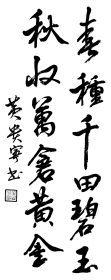 春種千田碧玉
秋收萬倉黃金
黃貴寧書